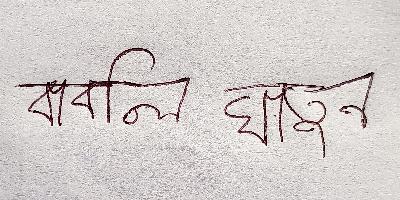 বাবলি খাতুন